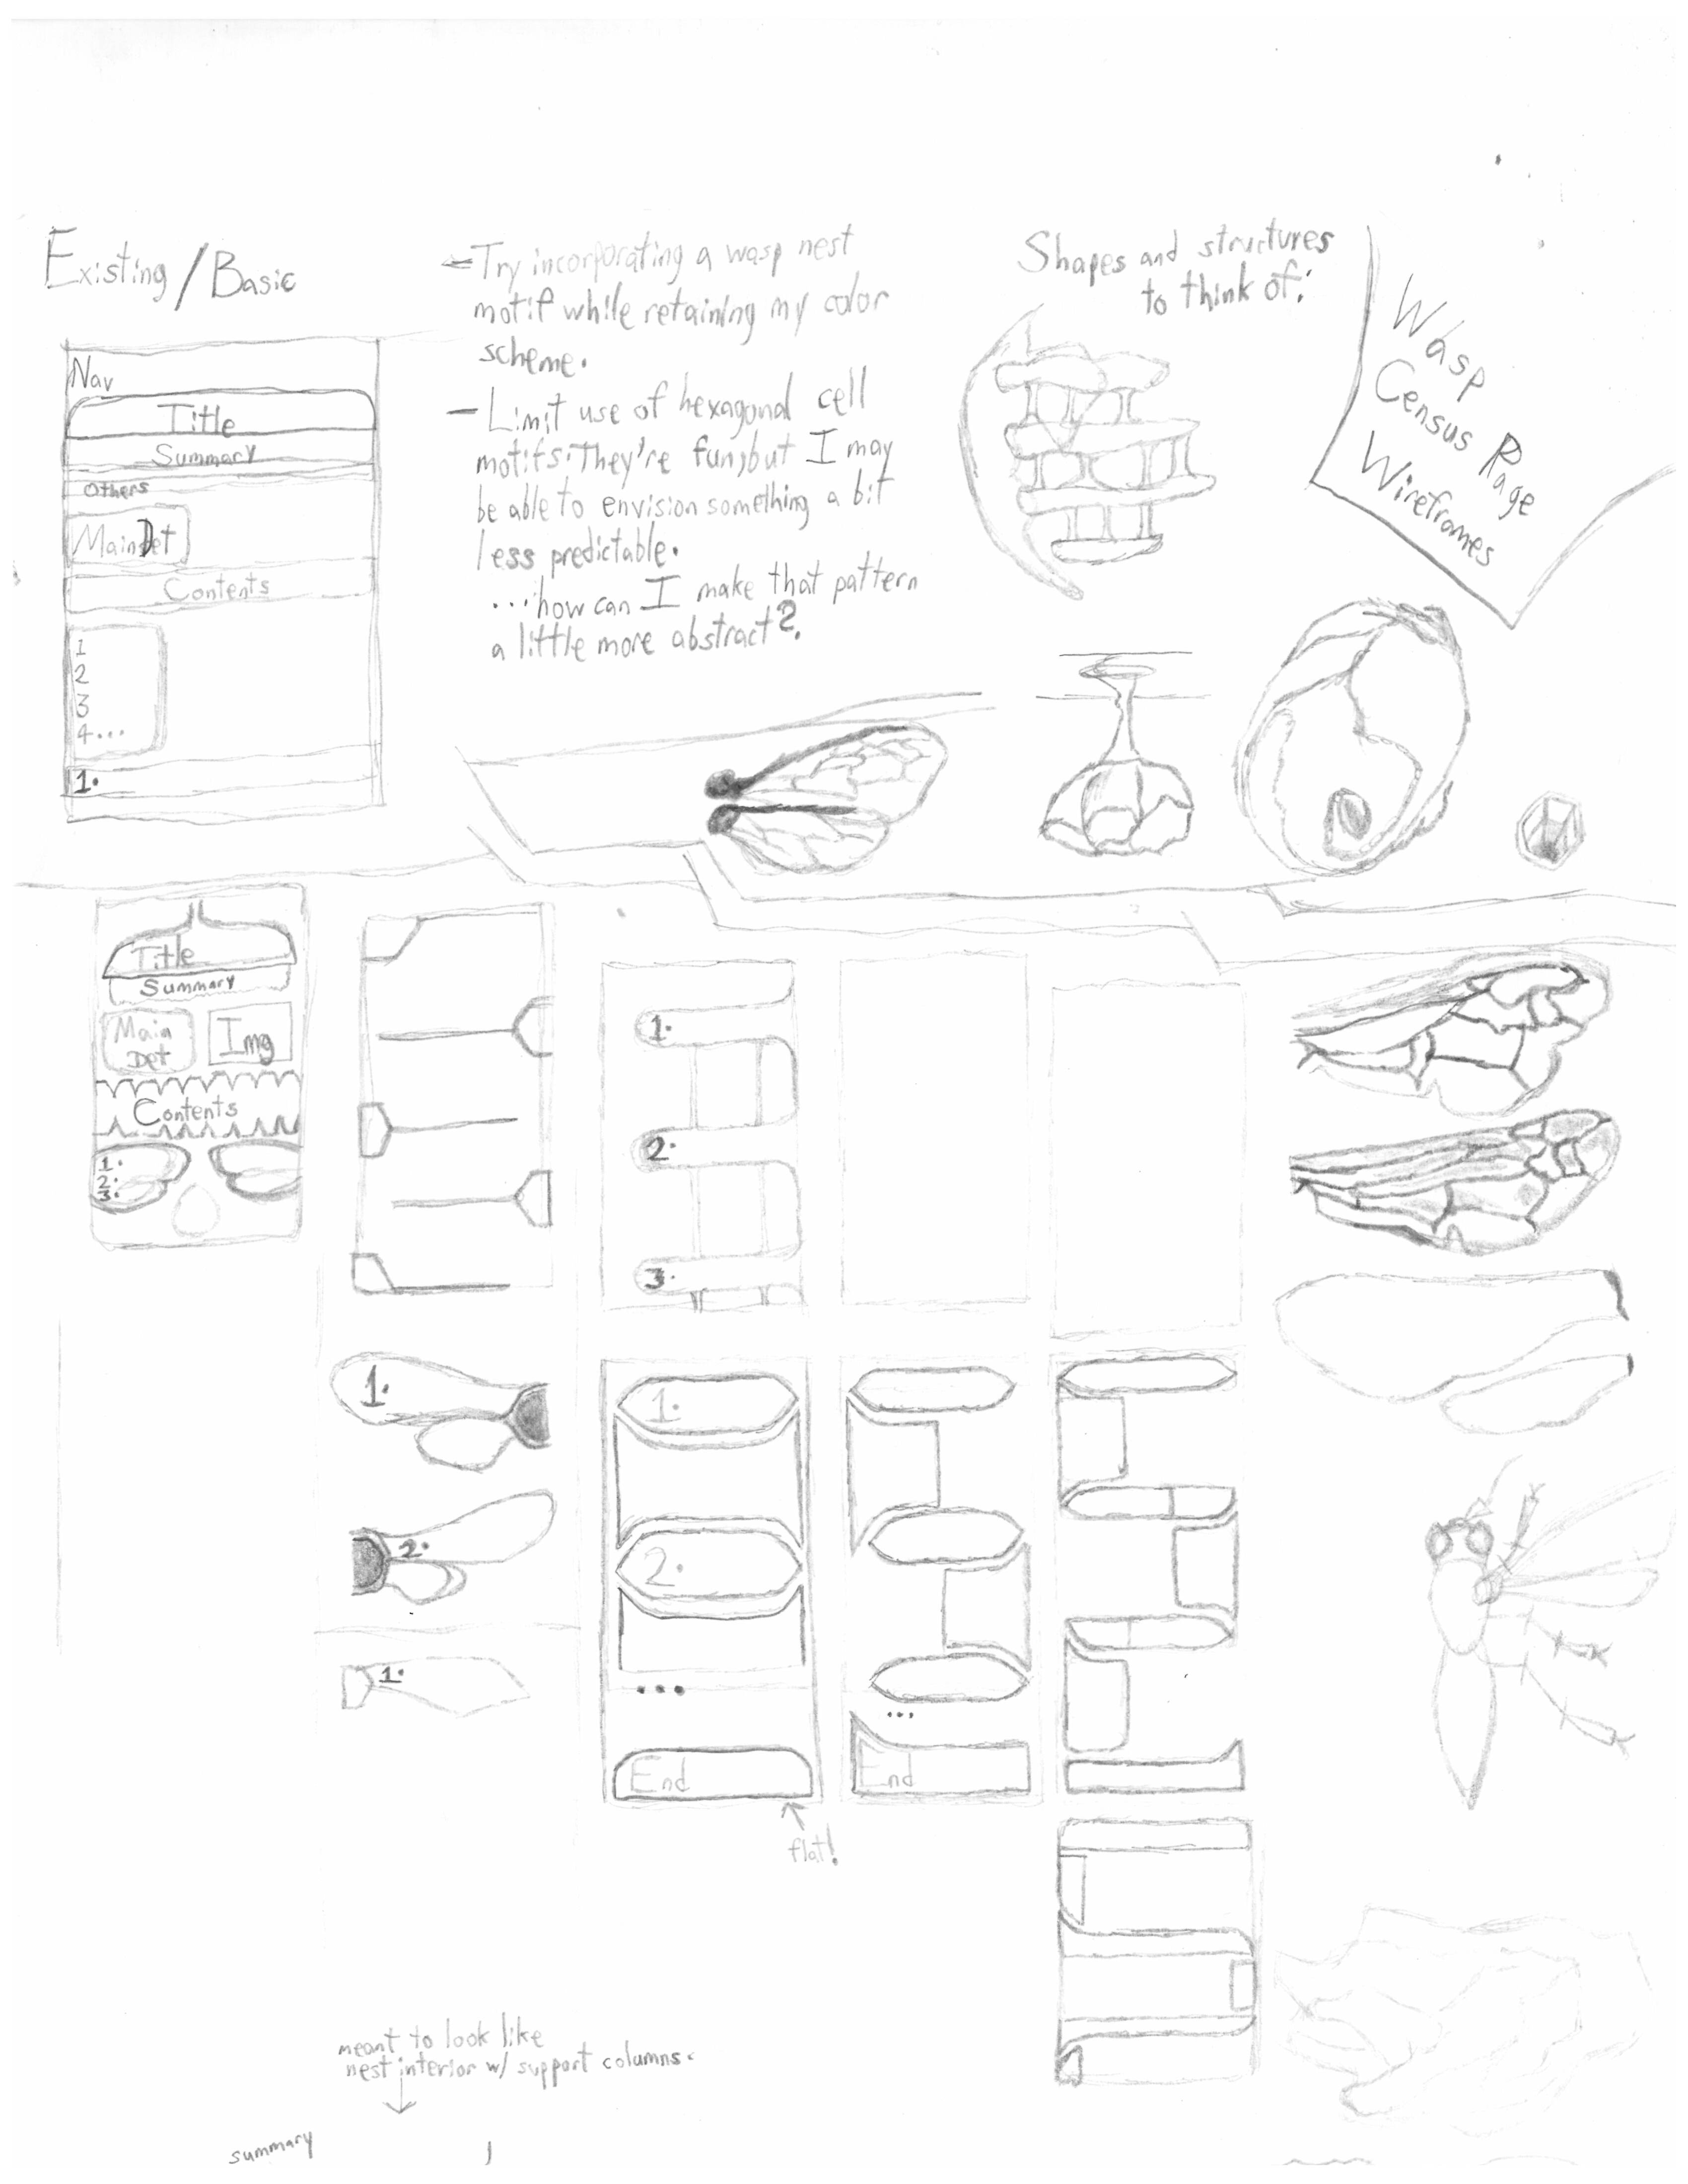 Existing/Basic
Nav
Title
Summary
Others
Main Det
Contents
1
2
3
4...
1.
- Try incorporating a wasp nest
motif while retaining my color
scheme.
- Limit use of hexagonal cell
motifs. They're fun, but I may
be able to envision something a bit
less predictable.
...how can I make that pattern
a little more abstract?
Shapes and structures
to think of:
Wasp
Census Page
Wireframes
Title
Summary
Main
Det
Img
Contents
1.
2.
3.
1.
2.
3.
1.
2.
1.
1.
2.
...
End
flat!
...
End
meant to look like
nest interior w/ support columns.
summary